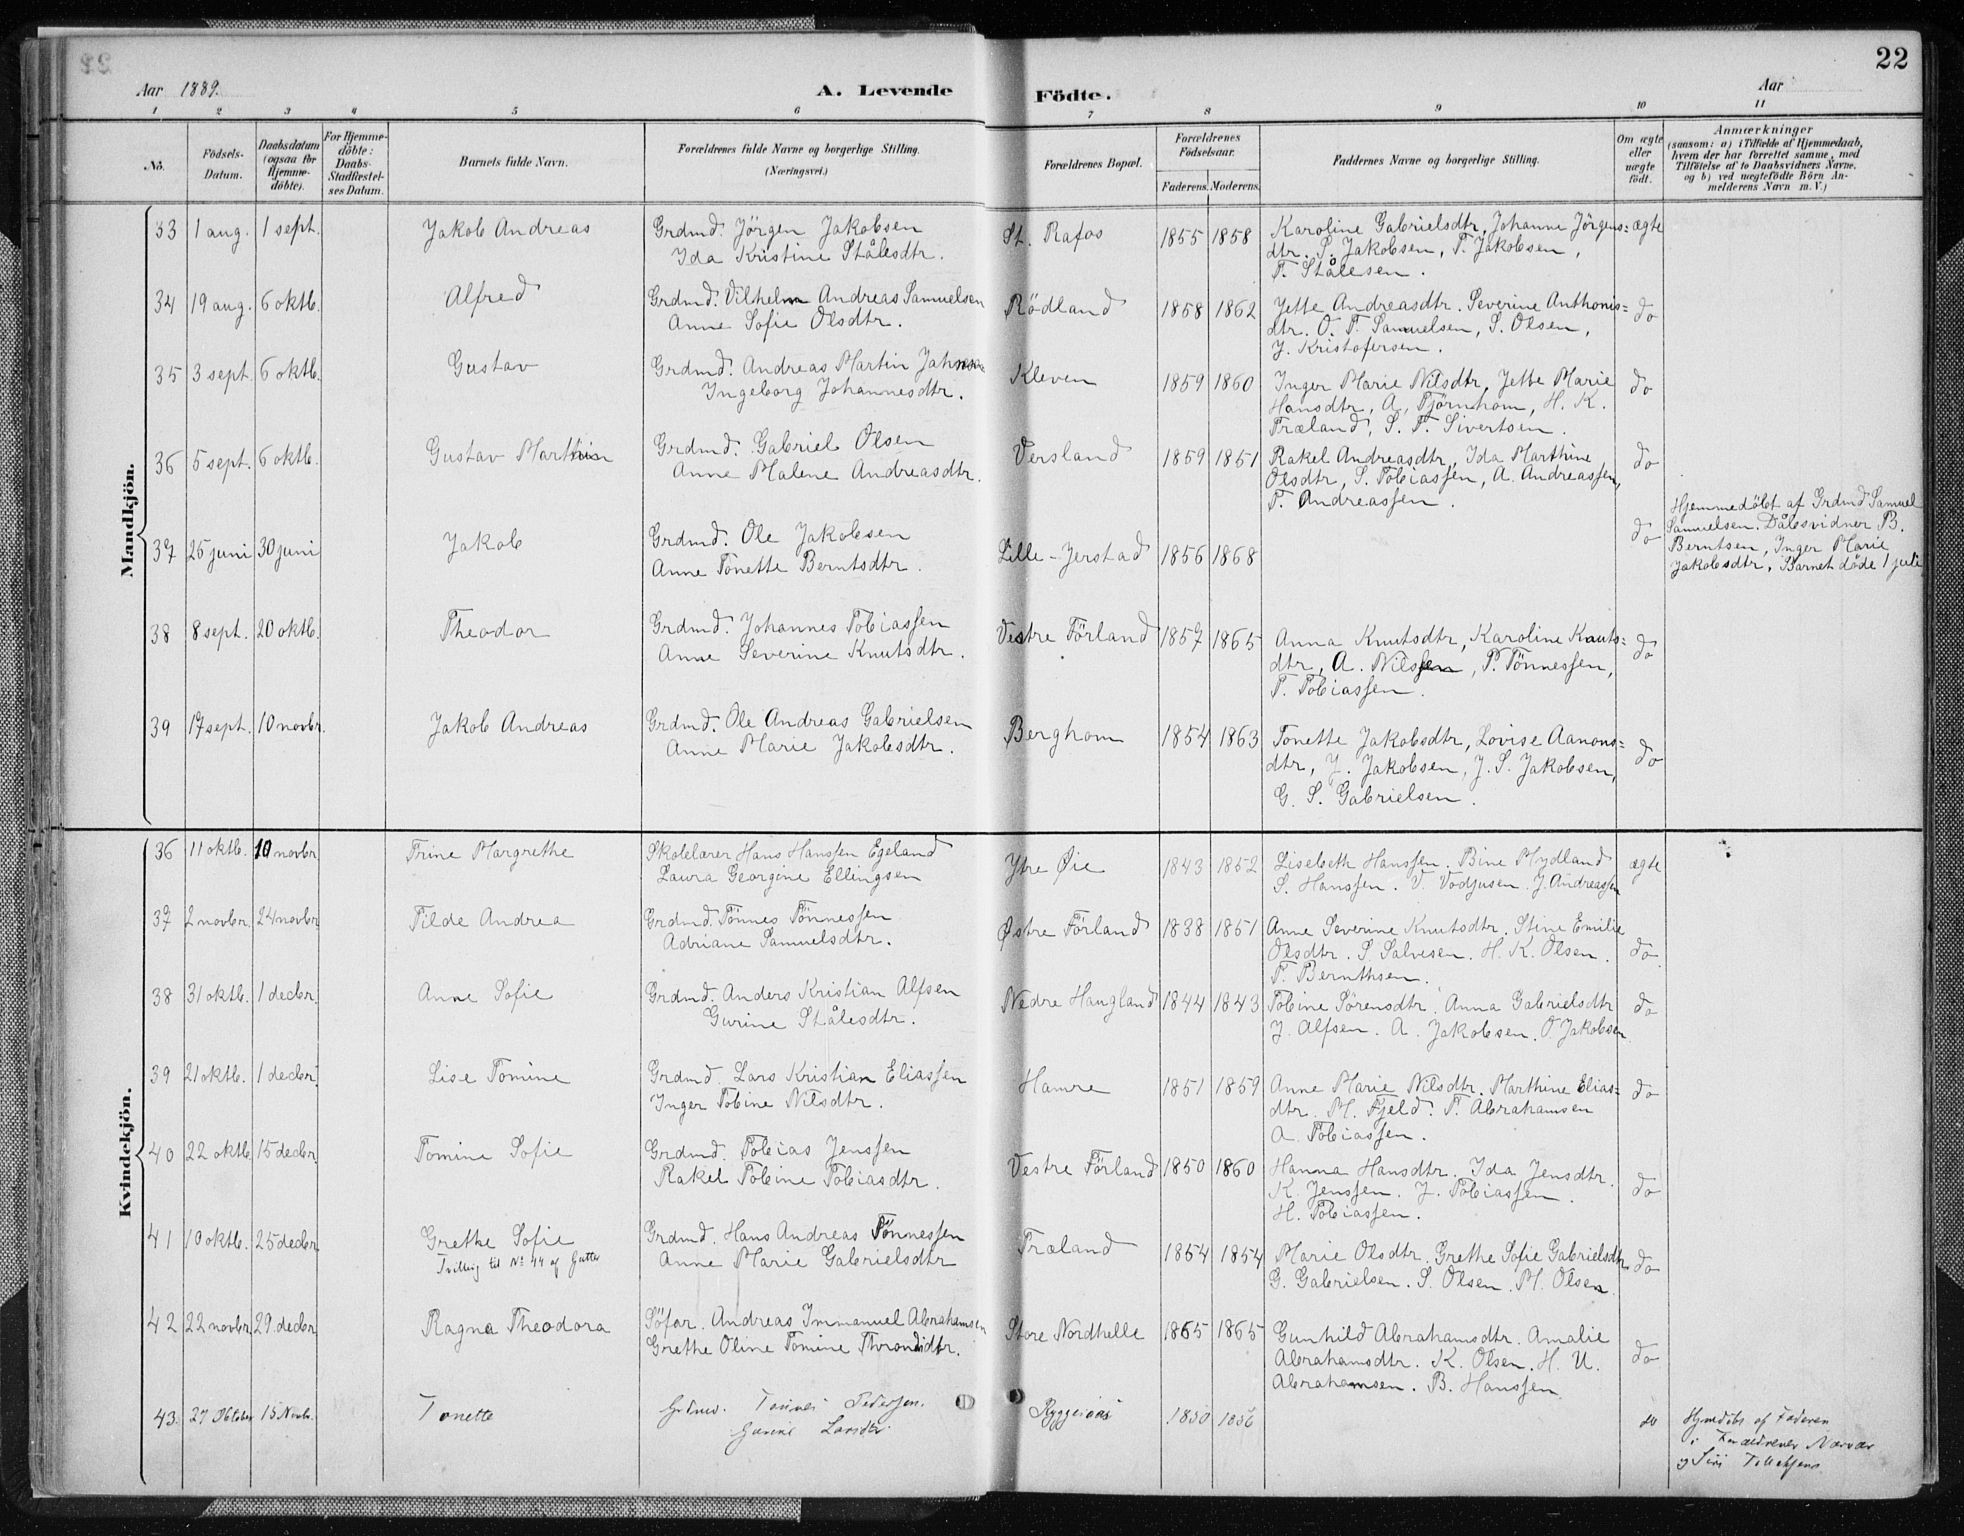 22
Aar 1889.
A. Levende Födte.
Aar
1 2 3 4 5 6 7 8 9 10 11
No.
Födsels-Datum.
Daabsdatum (ogsaa for Hjemme-döbte).
For Hjemme-döbte: Daabs-Stadfæstel-ses Datum.
Barnets fulde Navn.
Forældrenes fulde Navne og borgerlige Stilling. (Næringsvei.)
Forældrenes Bopæl.
Forældrenes Födselsaar.
Faderens. Moderens.
Faddernes Navne og borgerlige Stilling.
Om ægte eller uægte födt.
Anmærkninger
(saasom: a) i Tilfælde af Hjemmedaab,
hvem der har forrettet samme, med
Tilföielse af to Daabsvidners Navne,
og b) ved uægtefödte Börn An-
melderens Navn m. V.)
Mandkjön.
33 1 aug. 1 sept. Jakob Andreas Grdmd. Jörgen Jakobsen St. Rafos 1855 1858 Karoline Gabrielsdtr, Johanne Jörgens= ægte
Ida Kristine Stålesdtr. dtr. P. Jakobsen, T. Jakobsen,
T. Stålesen.
34 19 aug. 6 oktb. Alfred Grdmd. Vilhelm Andreas Samuelsen Rödland 1858 1862 Jette Andreasdtr. Severine Anthonis= do
Anne Sofie Olsdtr. dtr. O. T. Samuelsen, S. Olsen,
J. Kristofersen.
35 3 sept. 6 oktb. Gustav Grdmd. Andreas Martin Kleven 1859 1860 Inger Marie Nilsdtr, Jette Marie do
Ingeborg Johannesdtr. Hansdtr, A. Tjörnhom, H. K.
Træland, S. T. Sivertsen.
36 5 sept. 6 oktb. Gustav Marthin Grdmd. Gabriel Olsen Versland 1859 1851 Rakel Andreasdtr, Ida Marthine do
Anne Malene Andreasdtr. Olsdtr, S. Tobiassen, A. Andreassen,
T. Andreassen.
37 25 juni 30 juni Jakob Grdmd. Ole Jakobsen Lille-Jerstad 1856 1868 do Hjemmedöbt af Grdmd Samuel
Anne Tonette Berntsdtr. Samuelsen. Dåbsvidner B.
Berntsen, Inger Marie
Jakobsdtr. Barnet döde 1 juli
38 8 sept. 20 oktb. Theodor Grdmd. Johannes Tobiassen Vestre Förland 1857 1865 Anna Knutsdtr, Karoline Knuts= do
Anne Severine Knutsdtr. dtr, A. Nilssen, P. Tönnessen,
T. Tobiassen.
39 17 sept. 10 novbr. Jakob Andreas Grdmd. Ole Andreas Gabrielsen Berghom 1854 1863 Tonette Jakobsdtr, Lovise Aanons= do
Anne Marie Jakobsdtr. dtr, J. Jakobsen, J. S. Jakobsen,
G. S. Gabrielsen.
Kvindekjön.
36 11 oktb. 10 novbr Trine Margrethe Skolelærer Hans Hanssen Egeland Ytre Øie 1843 1852 Lisebeth Hanssen. Bine Mydland ægte
Laura Georgine Ellingsen S. Hanssen. V. J. Andreassen
37 2 novbr. 24 novbr Tilde Andrea Grdmd. Tönnes Tönnessen Østre Förland 1838 1851 Anne Severine Knutsdtr. Stine Emilie
Adriane Samuelsdtr. Olsdtr. S. Salvesen. H. K. Olsen. do
T. Bernthsen.
38 31 oktb. 1 decbr. Anne Sofie Grdmd. Anders Kristian Alfsen Nedre Haugland 1844 1843 Tobine Sörensdtr. Anna Gabrielsdtr do
Gurine Stålesdtr. J. Alfsen. A. Jakobsen. O. Jakobsen
39 21 oktb. 1 decbr. Lise Tomine Grdmd. Lars Kristian Eliassen Hamre 1851 1859 Anne Marie Nilsdtr. Marthine Elias= do
Inger Tobine Nilsdtr. dtr. M. Fjeld. T. Abrahamsen
A. Tobiassen.
40 22 oktb. 15 decbr. Tomine Sofie Grdmd. Tobias Jenssen Vestre Förland 1850 1860 Hanna Hansdtr. Ida Jensdtr.
Rakel Tobine Tobiasdtr. K. Jenssen. J. Tobiassen. do
H. Tobiassen.
41 10 oktb. 25 decbr Grethe Sofie Grdmd. Hans Andreas Tönnessen Træland 1854 1854 Marie Olsdtr. Grethe Sofie Gabrielsdtr do
Tvilling til No 44 af Gutter Anne Marie Gabrielsdtr G. Gabrielsen. S. Olsen. M. Olsen
42 22 novbr 29 decbr Ragna Theodora Söfar. Andreas Immanuel Abrahamsen Store Nordhelle 1865 1865 Gunhild Abrahamsdtr. Amalie
Grethe Oline Tomine Throndsdtr. Abrahamsdtr. K. Olsen. H. U. do
Abrahamsen. B. Hanssen
43. 27 Oktober 15 Novb. Tonette Grdmd. Tönnes Pedersen. 1850 1856 do Hjmdöbt af Faderen
Gurine Larsdtr. i Forældrenes Nærvær
og Siri